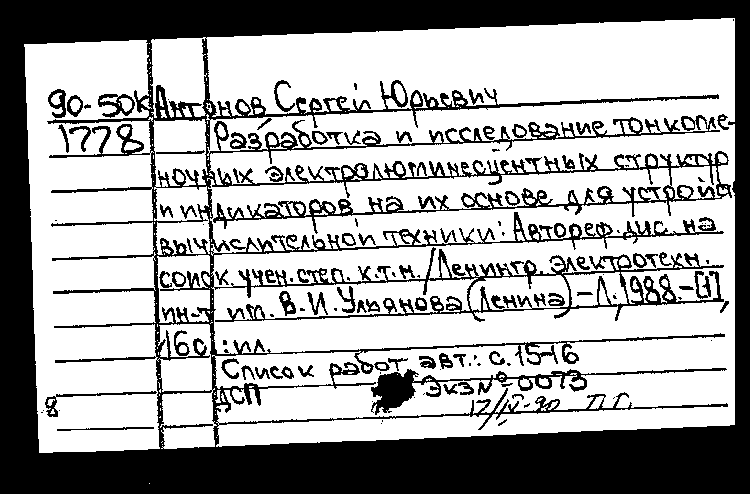 90-50К Антонов Сергей Юрьевич
1778 Разработка и исследование тонкопле-
ночных электролюминесцентных структур
и индикаторов на их основе для устройств
вычислительной техники: Автореф. дис. на
соиск. учен. степ. к.т.н. / Ленингр. электротехн.
ин-т им. В.И. Ульянова (Ленина) – Л., 1988. – [1],
16с.: ил.
Список работ авт.: с. 15-16
ДСП Экз № 0073
8 17/IV-90 П.Г.